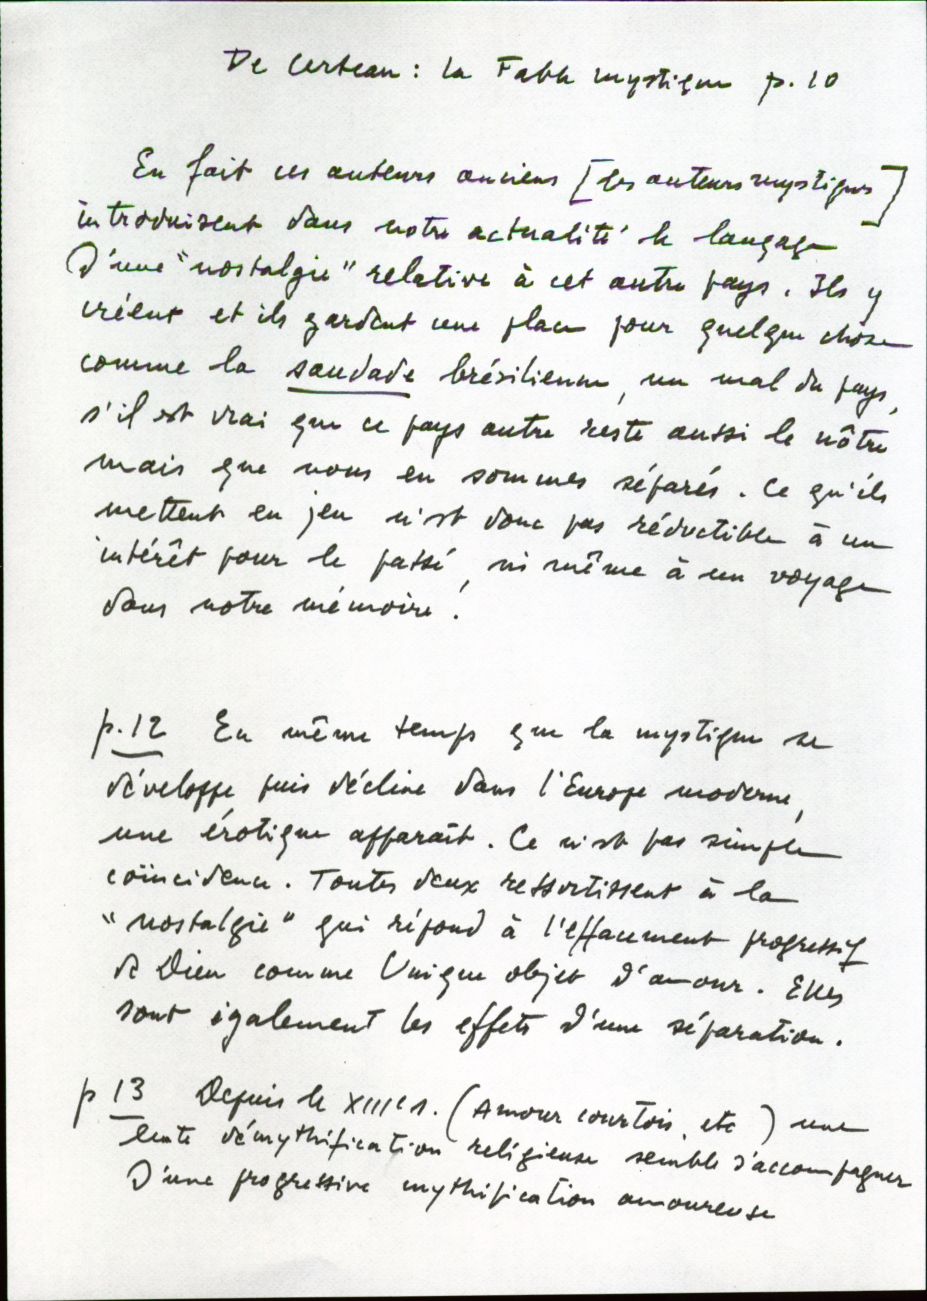 De Certeau : La Fable mystique p. 10
En fait ces auteurs anciens [les auteurs mystiques]
introduisent dans notre actualité le langage
d'une "nostalgie" relative à cet autre pays. Ils y
créent et ils gardent une place pour quelque chose
comme la saudade brésilienne, un mal du pays,
s'il est vrai que ce pays autre reste aussi le nôtre
mais que nous en sommes séparés. Ce qu'ils
mettent en jeu n'est donc pas réductible à un
intérêt pour le passé, ni même à un voyage
dans notre mémoire.
p.12 En même temps que la mystique se
développe puis décline dans l'Europe moderne,
une érotique apparaît. Ce n'est pas simple
coïncidence. Toutes deux ressortissent à la
"nostalgie" qui répond à l'effacement progressif
de Dieu comme Unique objet d'amour. Elles
sont également les effets d'une séparation.
p 13 Depuis le XIIIe s. (Amour courtois, etc) une
lente démythification religieuse semble s'accompagner
d'une progressive mythification amoureuse